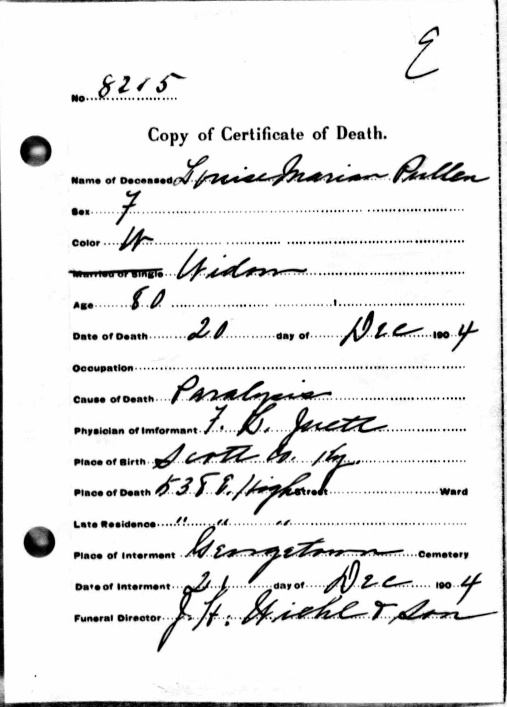 E
No. 8215
Copy of Certificate of Death.
Name of Deceased Louise Marian Pullen
Sex F
Color W
Married or Single Widow
Age 80
Date of Death 20 day of Dec 1904
Occupation
Cause of Death Paralysis
Physician of Imformant F. L. Juett
Place of Birth Scott Co. Ky.
Place of Death 538 E. High Street Ward
Late Residence " " "
Place of Interment Georgetown Cemetery
Date of Interment 21 day of Dec 1904
Funeral Director J. H. Wiehl & Son